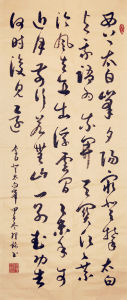 西上太白峰夕陽窮登攀太白
與我語為我開天關願乘
泠風去直出浮雲間舉手可
近月前行若無山一別武功去
何時復見還